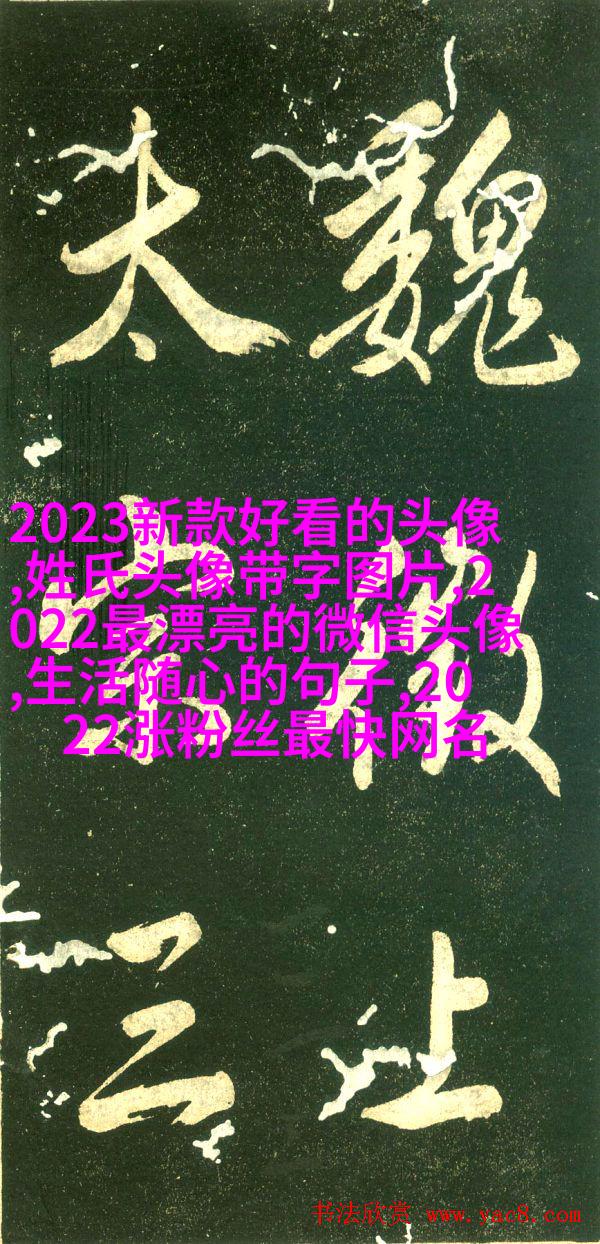 魏徵上
太
2023新款好看的头像
,姓氏头像带字图片,2
022最漂亮的微信头像
,生活随心的句子,20
22涨粉丝最快网名
书法欣赏 www.yac8.com